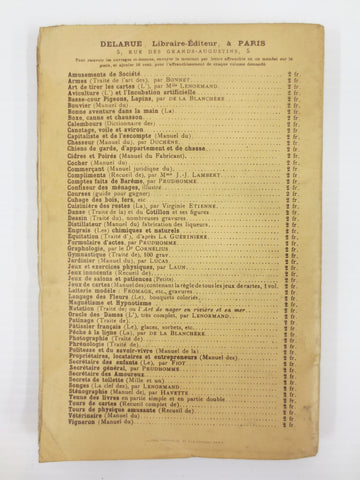 DELARUE, Libraire-Éditeur, à PARIS
5, RUE DES GRANDS-AUGUSTINS, 5
Pour recevoir les ouvrages ci-dessous, envoyer le montant par lettre affranchie en un mandat sur la
poste, et ajouter 50 cent. pour l'affranchissement de chaque volume demandé.
Amusements de Société 2 fr.
Armes (Traité de l'art des), par BONNET 2 fr.
Art de tirer les cartes (L'), par Mlle LENORMAND. 2 fr.
Aviculture (L') et l'Incubation artificielle 2 fr.
Basse-cour Pigeons, Lapins, par DE LA BLANCHÈRE 2 fr.
Bouvier (Manuel du) 2 fr.
Bonne aventure dans la main (La) 2 fr.
Boxe, canne et chausson 2 fr.
Calembours (Dictionnaire des) 2 fr.
Canotage, voile et aviron 2 fr.
Capitaliste et de l'escompte (Manuel du) 2 fr.
Chasseur (Manuel du), par DUCHÊNE 2 fr.
Chiens de garde, d'appartement et de chasse 2 fr.
Cidres et Poirés (Manuel du Fabricant) 2 fr.
Cocher (Manuel du) 2 fr.
Commerçant (Manuel juridique du) 2 fr.
Compliments (Recueil de), par Mme J.-J. LAMBERT 2 fr.
Comptes faits de Barème, par PRUDHOMME 2 fr.
Confiseur des ménages, illustré 2 fr.
Courses (guide pour gagner) 2 fr.
Cubage des bois, fers, etc 2 fr.
Cuisinière des restes (La), par Virginie ETIENNE 2 fr.
Danse (Traité de la) et du Cotillon et ses figures 2 fr.
Dessin (Traité du), nombreuses gravures 2 fr.
Distillateur (Manuel du) fabrication des liqueurs 2 fr.
Engrais (Les) chimiques et naturels 2 fr.
Équitation (Traité d'), d'après LA GUÉRINIÈRE 2 fr.
Formulaire d'actes, par PRUDHOMME 2 fr.
Graphologie, par le Dr CORNÉLIUS 2 fr.
Gymnastique (Traité de), 100 grav 2 fr.
Jardinier (Manuel du), par LUCAS 2 fr.
Jeux et exercices physiques, par LAUN 2 fr.
Jeux innocents (Recueil de) 2 fr.
Jeux de salons et patiences (Petits) 2 fr.
Jeux de cartes (Manuel des) contenant la règle de tous les jeux de cartes, 1 vol. 2 fr.
Laiterie modèle : FROMAGE, etc., gravures 2 fr.
Langage des Fleurs (Le), bouquets coloriés 2 fr.
Magnétisme et Hypnotisme 2 fr.
Natation (Traité de) ou l'Art de nager en rivière et en mer 2 fr.
Oracle des Dames (L'), très complet, par LENORMAND 2 fr.
Patinage (Traité de) 2 fr.
Pâtissier français (Le), glaces, sorbets, etc 2 fr.
Pêche à la ligne (La), par DE LA BLANCHÈRE 2 fr.
Photographie (Traité de) 2 fr.
Phrénologie (Traité de) 2 fr.
Politesse et du savoir-vivre (Manuel de la) 2 fr.
Propriétaires, locataires et entrepreneurs (Manuel des) 2 fr.
Secrétaire des enfants (Le), par FIOT 2 fr.
Secrétaire général, par PRUDHOMME 2 fr.
Secrétaire des Amoureux 2 fr.
Secrets de toilette (Mille et un) 2 fr.
Songes (La clef des), par LENORMAND 2 fr.
Sténographie (Manuel de), par HAVETTE 2 fr.
Tenue des Livres en partie simple et en partie double 2 fr.
Tours de cartes (Recueil complet de) 2 fr.
Tours de physique amusante (Recueil de) 2 fr.
Vétérinaire (Manuel du) 2 fr.
Vigneron (Manuel du) 2 fr.